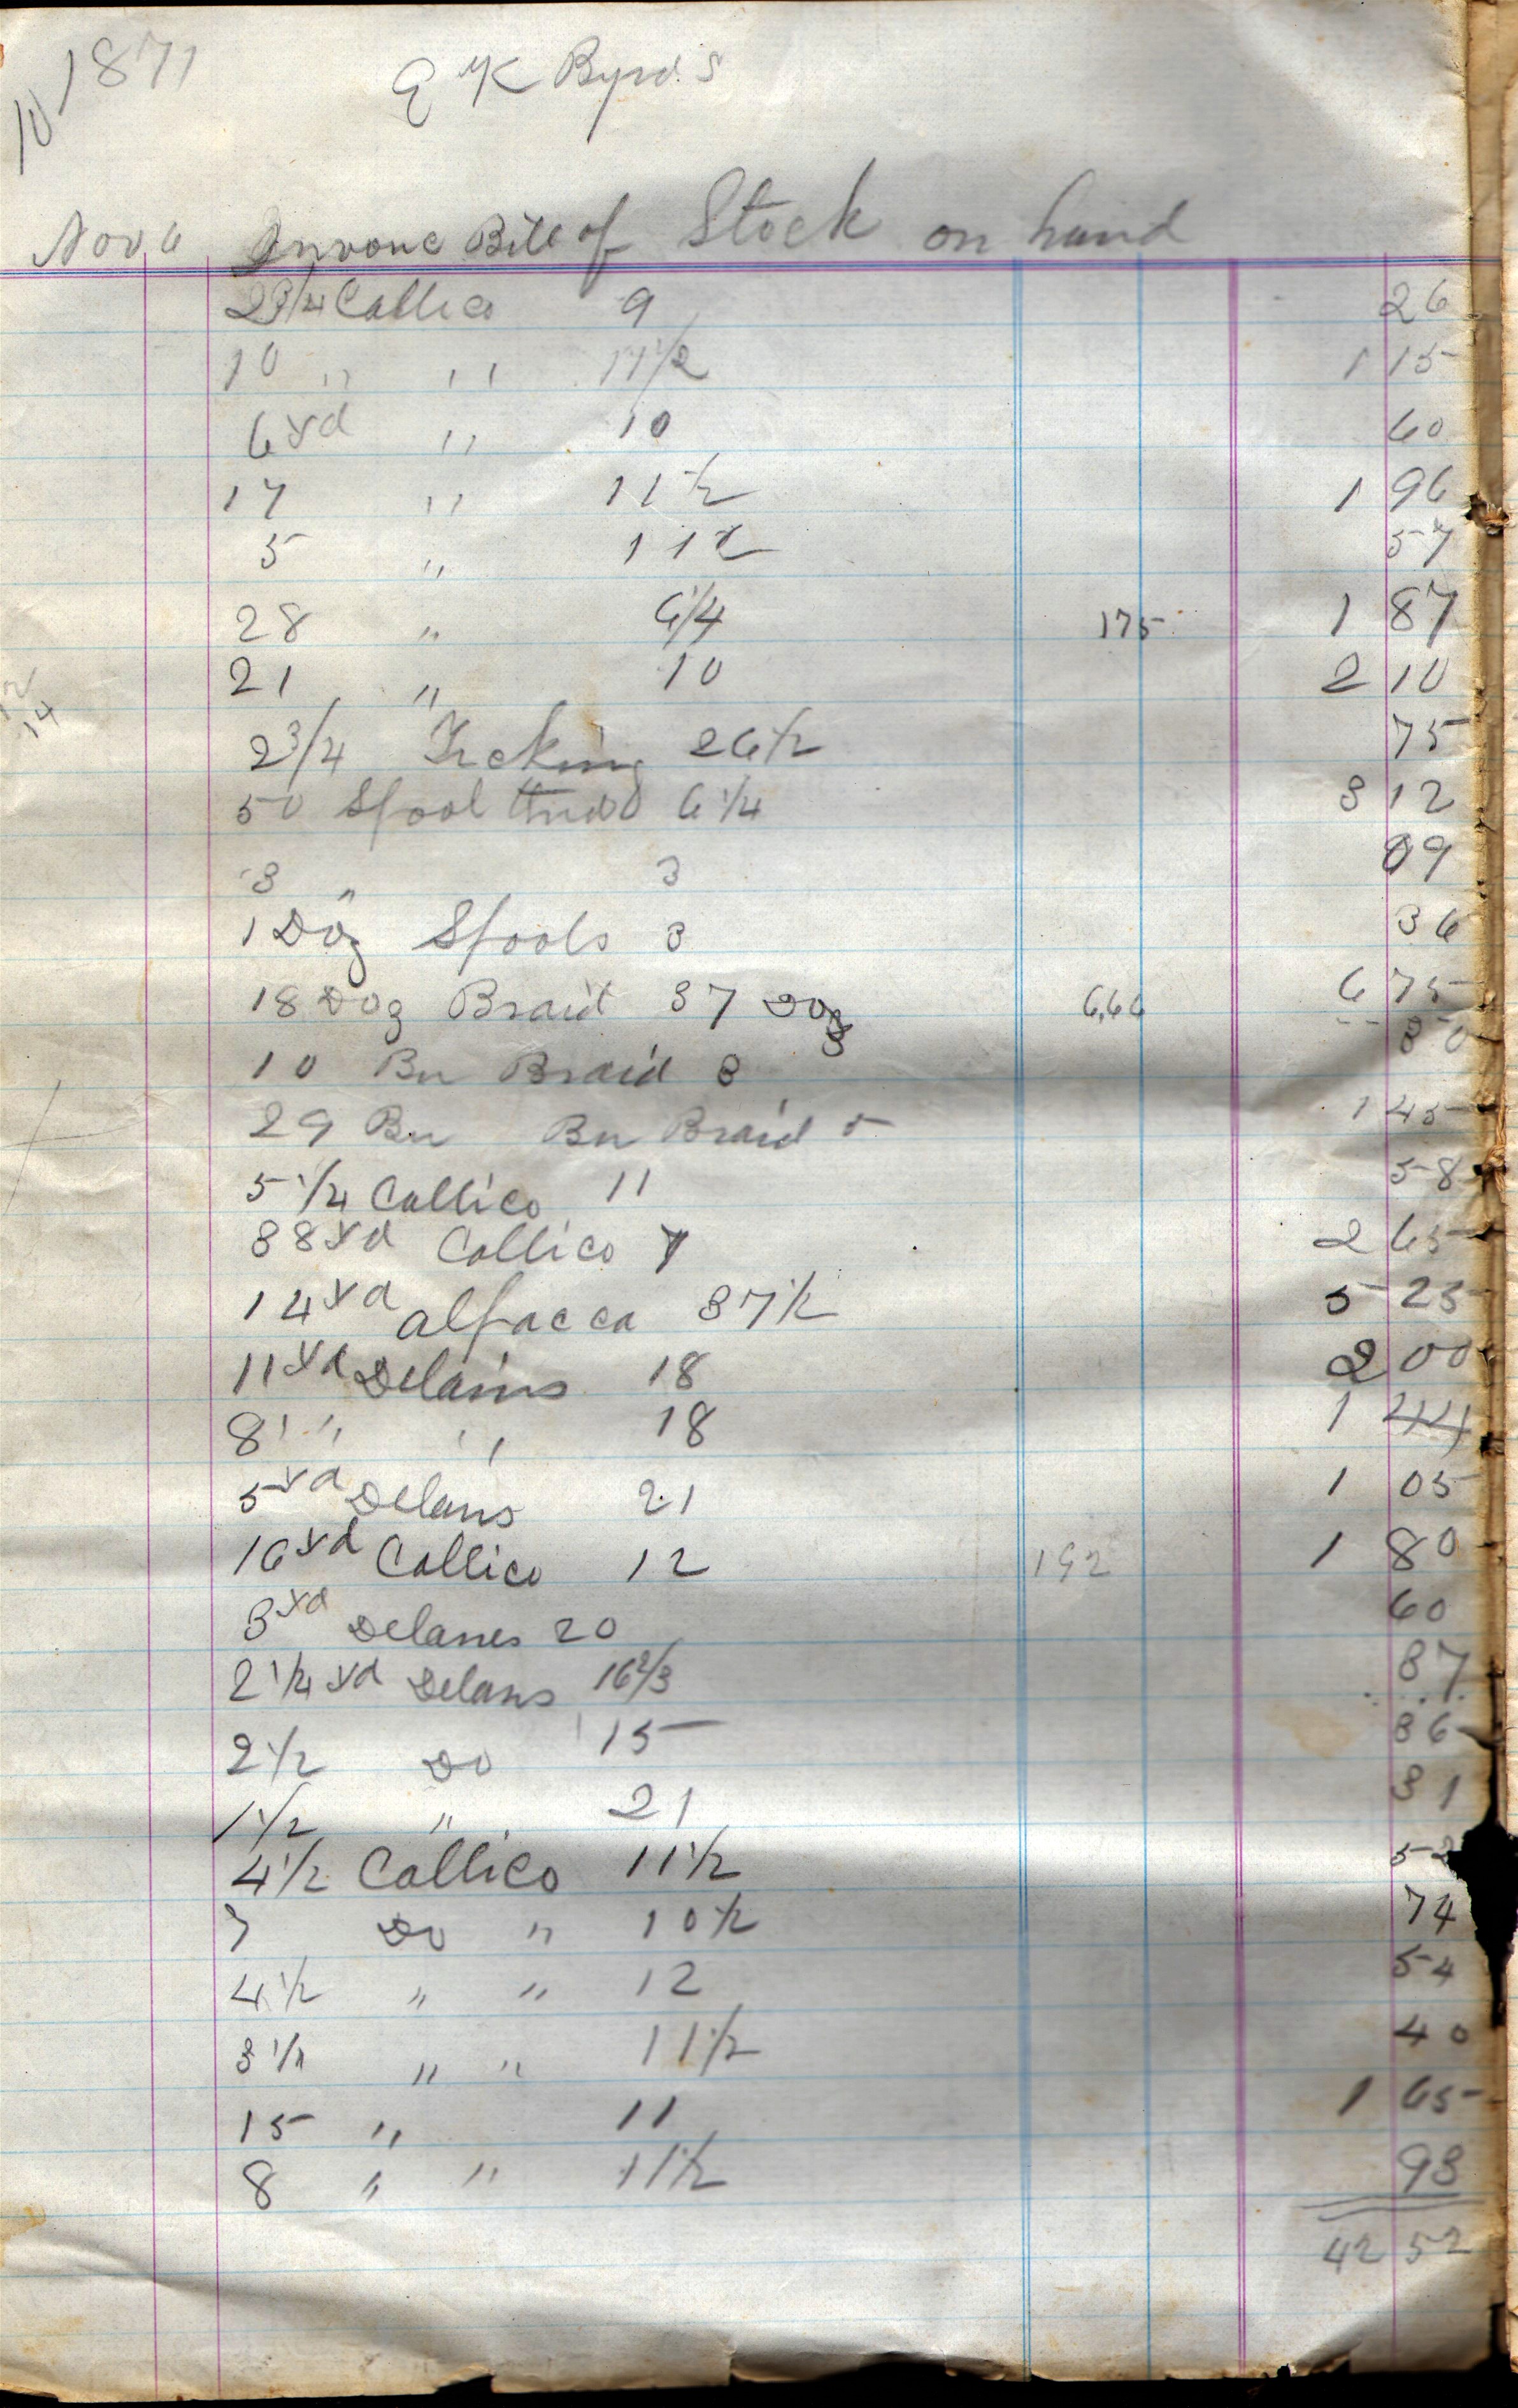 10 1871 E K Byrd.s
Nov 6 Invone Bill of Stock on hand
2 3/4 Callico 9 26
10 " " 11 1/2 1 15
6 yd " 10 60
17 " 11 1/2 1 96
5 " 11 1/2 57
28 " 6 1/4 175 1 87
21 " 10 2 10
2 3/4 Ticking 26 1/2 75
50 Spool thrd 6 1/4 3 12
3 " 3 09
1 Doz Spools 3 36
18 Doz Braid 37 Doz 6,66 6 75
10 Bn Braid 8 80
29 Bn Bn Braid 5 1 45
5 1/4 Callico 11 58
38 yd Callico 7 2 65
14 yd alpacca 37 1/2 5 25
11 yd Delains 18 2 00
8 " " 18 1 44
5 yd Delans 21 1 05
16 yd Callico 12 192 1 80
3 yd Delanes 20 60
2 1/4 yd Delans 16 2/3 37
2 1/2 Do 15 36
1 1/2 " 21 31
4 1/2 Callico 11 1/2 52
7 Do " 10 1/2 74
4 1/2 " " 12 54
3 1/2 " " 11 1/2 40
15 " 11 1 65
8 " " 11 1/2 93
42 52